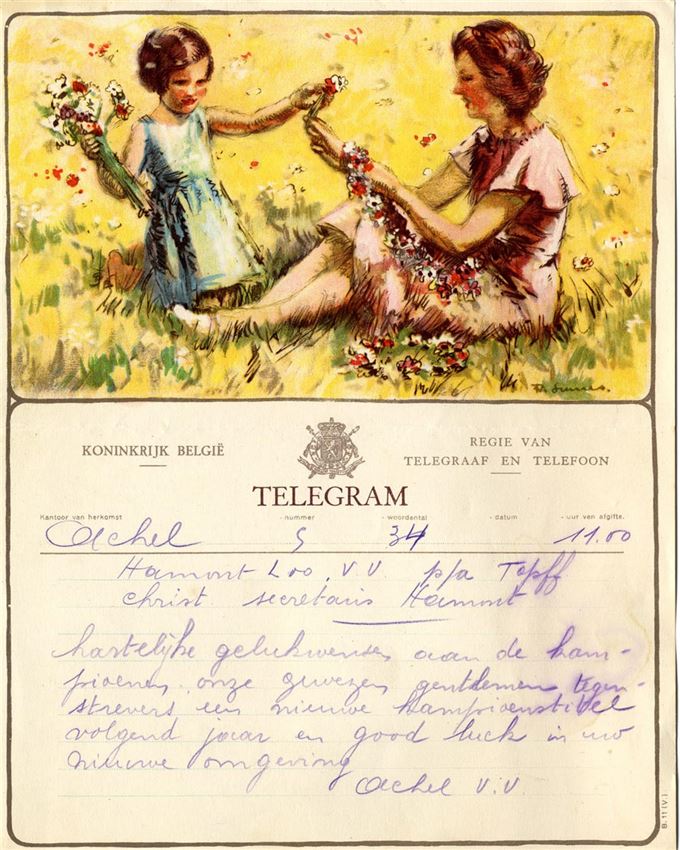 KONINKRIJK BELGIË
REGIE VAN
TELEGRAAF EN TELEFOON
TELEGRAM
Kantoor van herkomst - nummer - woordental - datum - uur van afgifte.
Achel 5 34 11.00
Hamont Loo, V.V. p/a Topff
Christ secretaris Hamont
hartelijke gelukwensen aan de kam-
pioenen onze gewezen gentlemen tegen-
strevers een nieuwe kampioenstitel
volgend jaar en good luck in uw
nieuwe omgeving
Achel V.V.
B. 11 (V.)